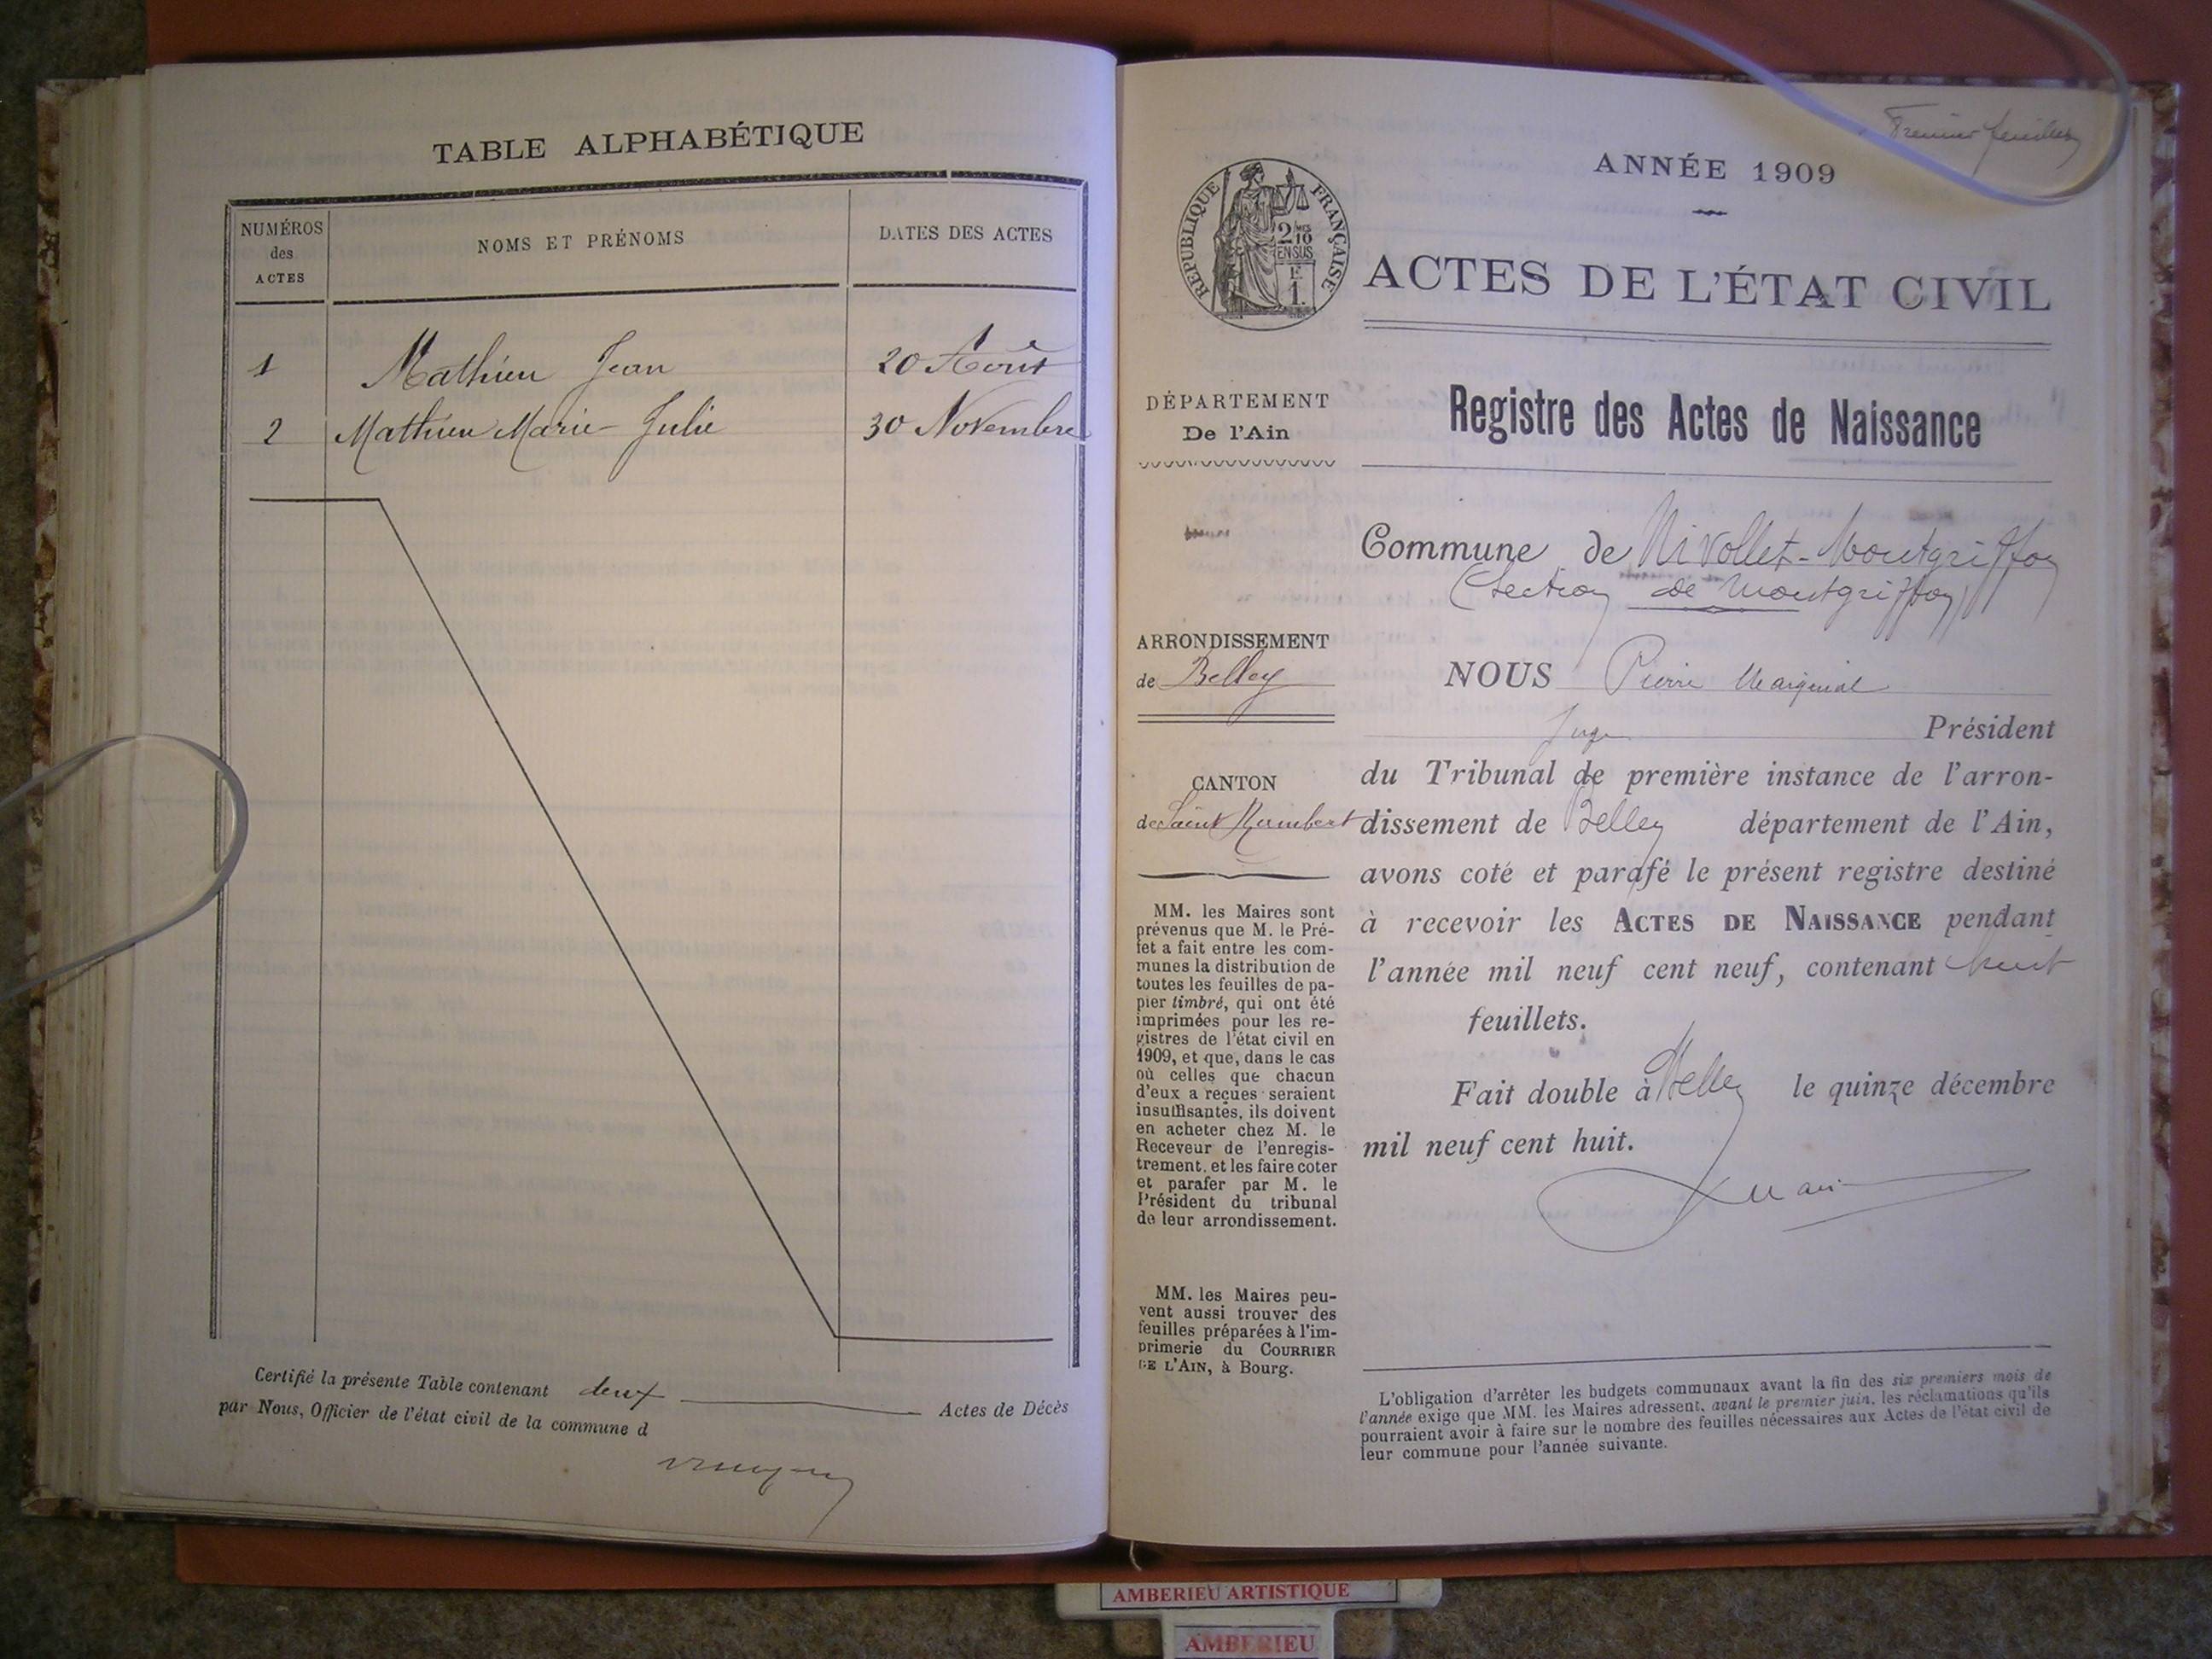 TABLE ALPHABÉTIQUE
NUMÉROS des ACTES
NOMS ET PRÉNOMS
DATES DES ACTES
1 Mathieu Jean 20 Août
2 Mathieu Marie-Julie 30 Novembre
Certifié la présente Table contenant deux Actes de Décès
par Nous, Officier de l'état civil de la commune d
Premier feuillet
ANNÉE 1909
RÉPUBLIQUE FRANÇAISE
2 10 MES
EN SUS
ACTES DE L'ÉTAT CIVIL
DÉPARTEMENT
De l'Ain
ARRONDISSEMENT
de Belley
CANTON
de Saint Rambert
MM. les Maires sont
prévenus que M. le Pré-
fet a fait entre les com-
munes la distribution de
toutes les feuilles de pa-
pier timbré, qui ont été
imprimées pour les re-
gistres de l'état civil en
1909, et que, dans le cas
où celles que chacun
d'eux a reçues seraient
insuffisantes, ils doivent
en acheter chez M. le
Receveur de l'enregis-
trement, et les faire coter
et parafer par M. le
Président du tribunal
de leur arrondissement.
MM. les Maires peu-
vent aussi trouver des
feuilles préparées à l'im-
primerie du COURRIER
DE L'AIN, à Bourg.
Registre des Actes de Naissance
Commune de Nivollet-Montgriffon
(Section de Montgriffon)
NOUS Pierre
Juge Président
du Tribunal de première instance de l'arron-
dissement de Belley département de l'Ain,
avons coté et parafé le présent registre destiné
à recevoir les ACTES DE NAISSANCE pendant
l'année mil neuf cent neuf, contenant huit
feuillets.
Fait double à Belley le quinze décembre
mil neuf cent huit.
L'obligation d'arrêter les budgets communaux avant la fin des six premiers mois de
l'année exige que MM. les Maires adressent, avant le premier juin, les réclamations qu'ils
pourraient avoir à faire sur le nombre des feuilles nécessaires aux Actes de l'état civil de
leur commune pour l'année suivante.
AMBERIEU ARTISTIQUE
AMBERIEU